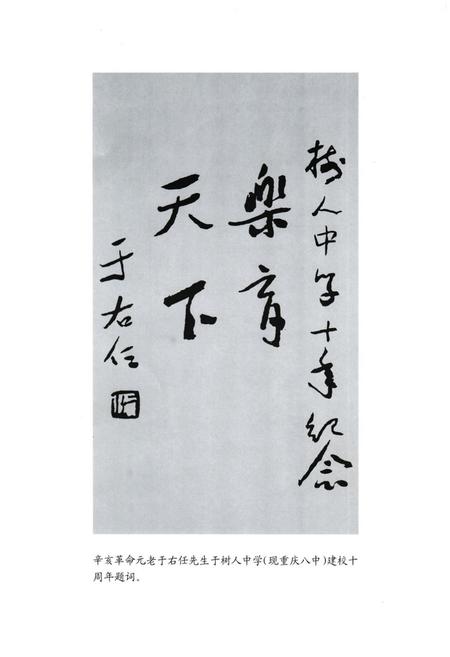 树人中学十年纪念
樂育
天下
于右任
辛亥革命元老于右任先生于树人中学(现重庆八中)建校十
周年题词。